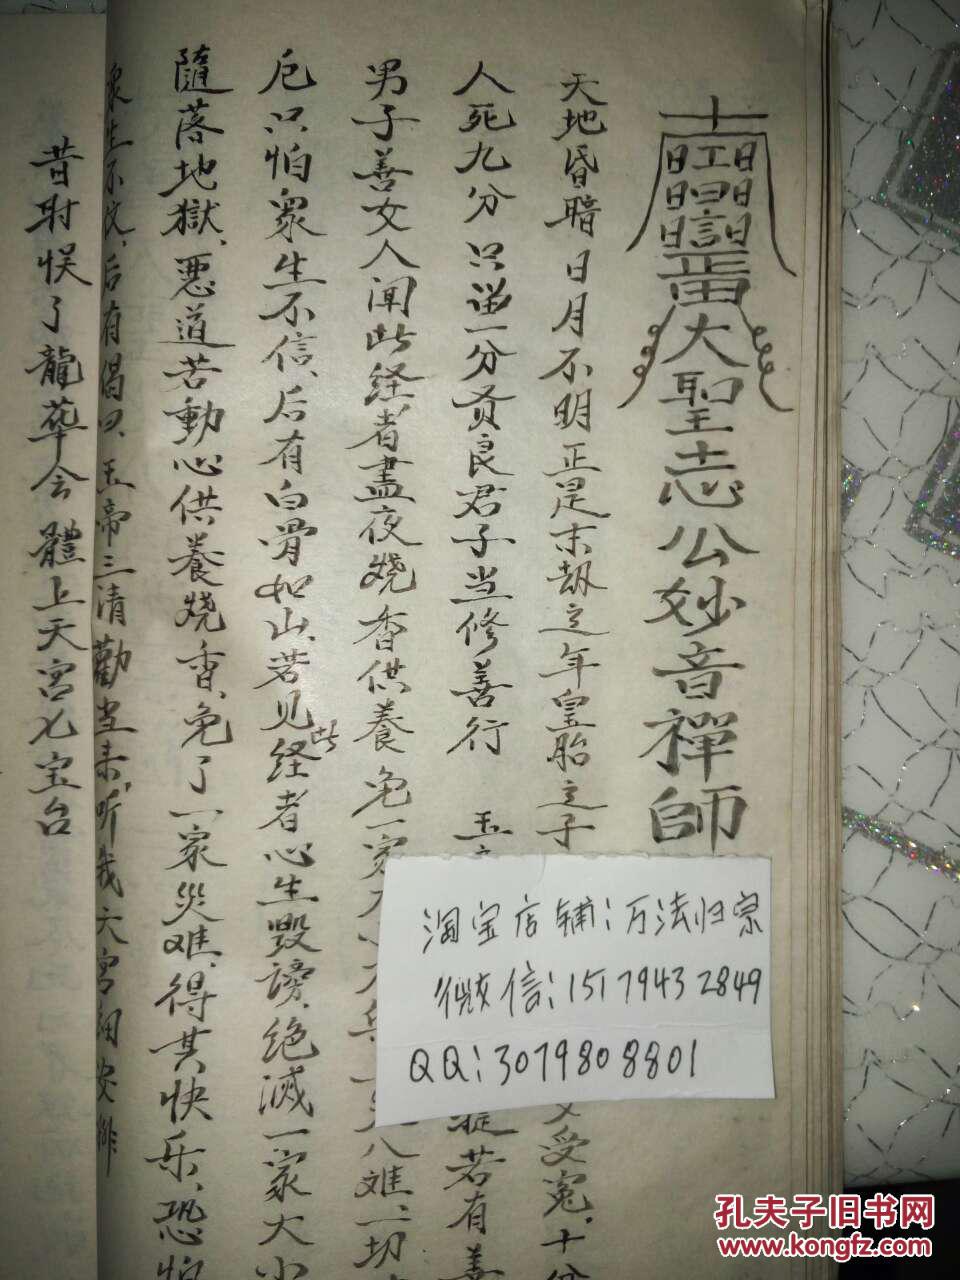 大聖志公妙音禪師
天地昏暗日月不明正是末劫之年皇胎之子
受冤、十分
人死九分只逃一分贤良君子当修善行 玉
若有善
男子善女人闻此经者尽夜烧香供養免一家
八难、一切
厄只怕眾生不信、后有白骨如山、若见此经者心生毁謗、绝滅一家大小
隨落地獄、惡道若動心供養燒香、免了一家災难、得其快乐、恐怕
眾生不忮、后有偈曰、玉帝三清勸当未、听我天宫細安排
昔时悮了龍華会 體上天宫七宝台
淘宝店铺:万法归宗
微信:15179432849
QQ:3079808801
孔夫子旧书网
www.kongfz.com